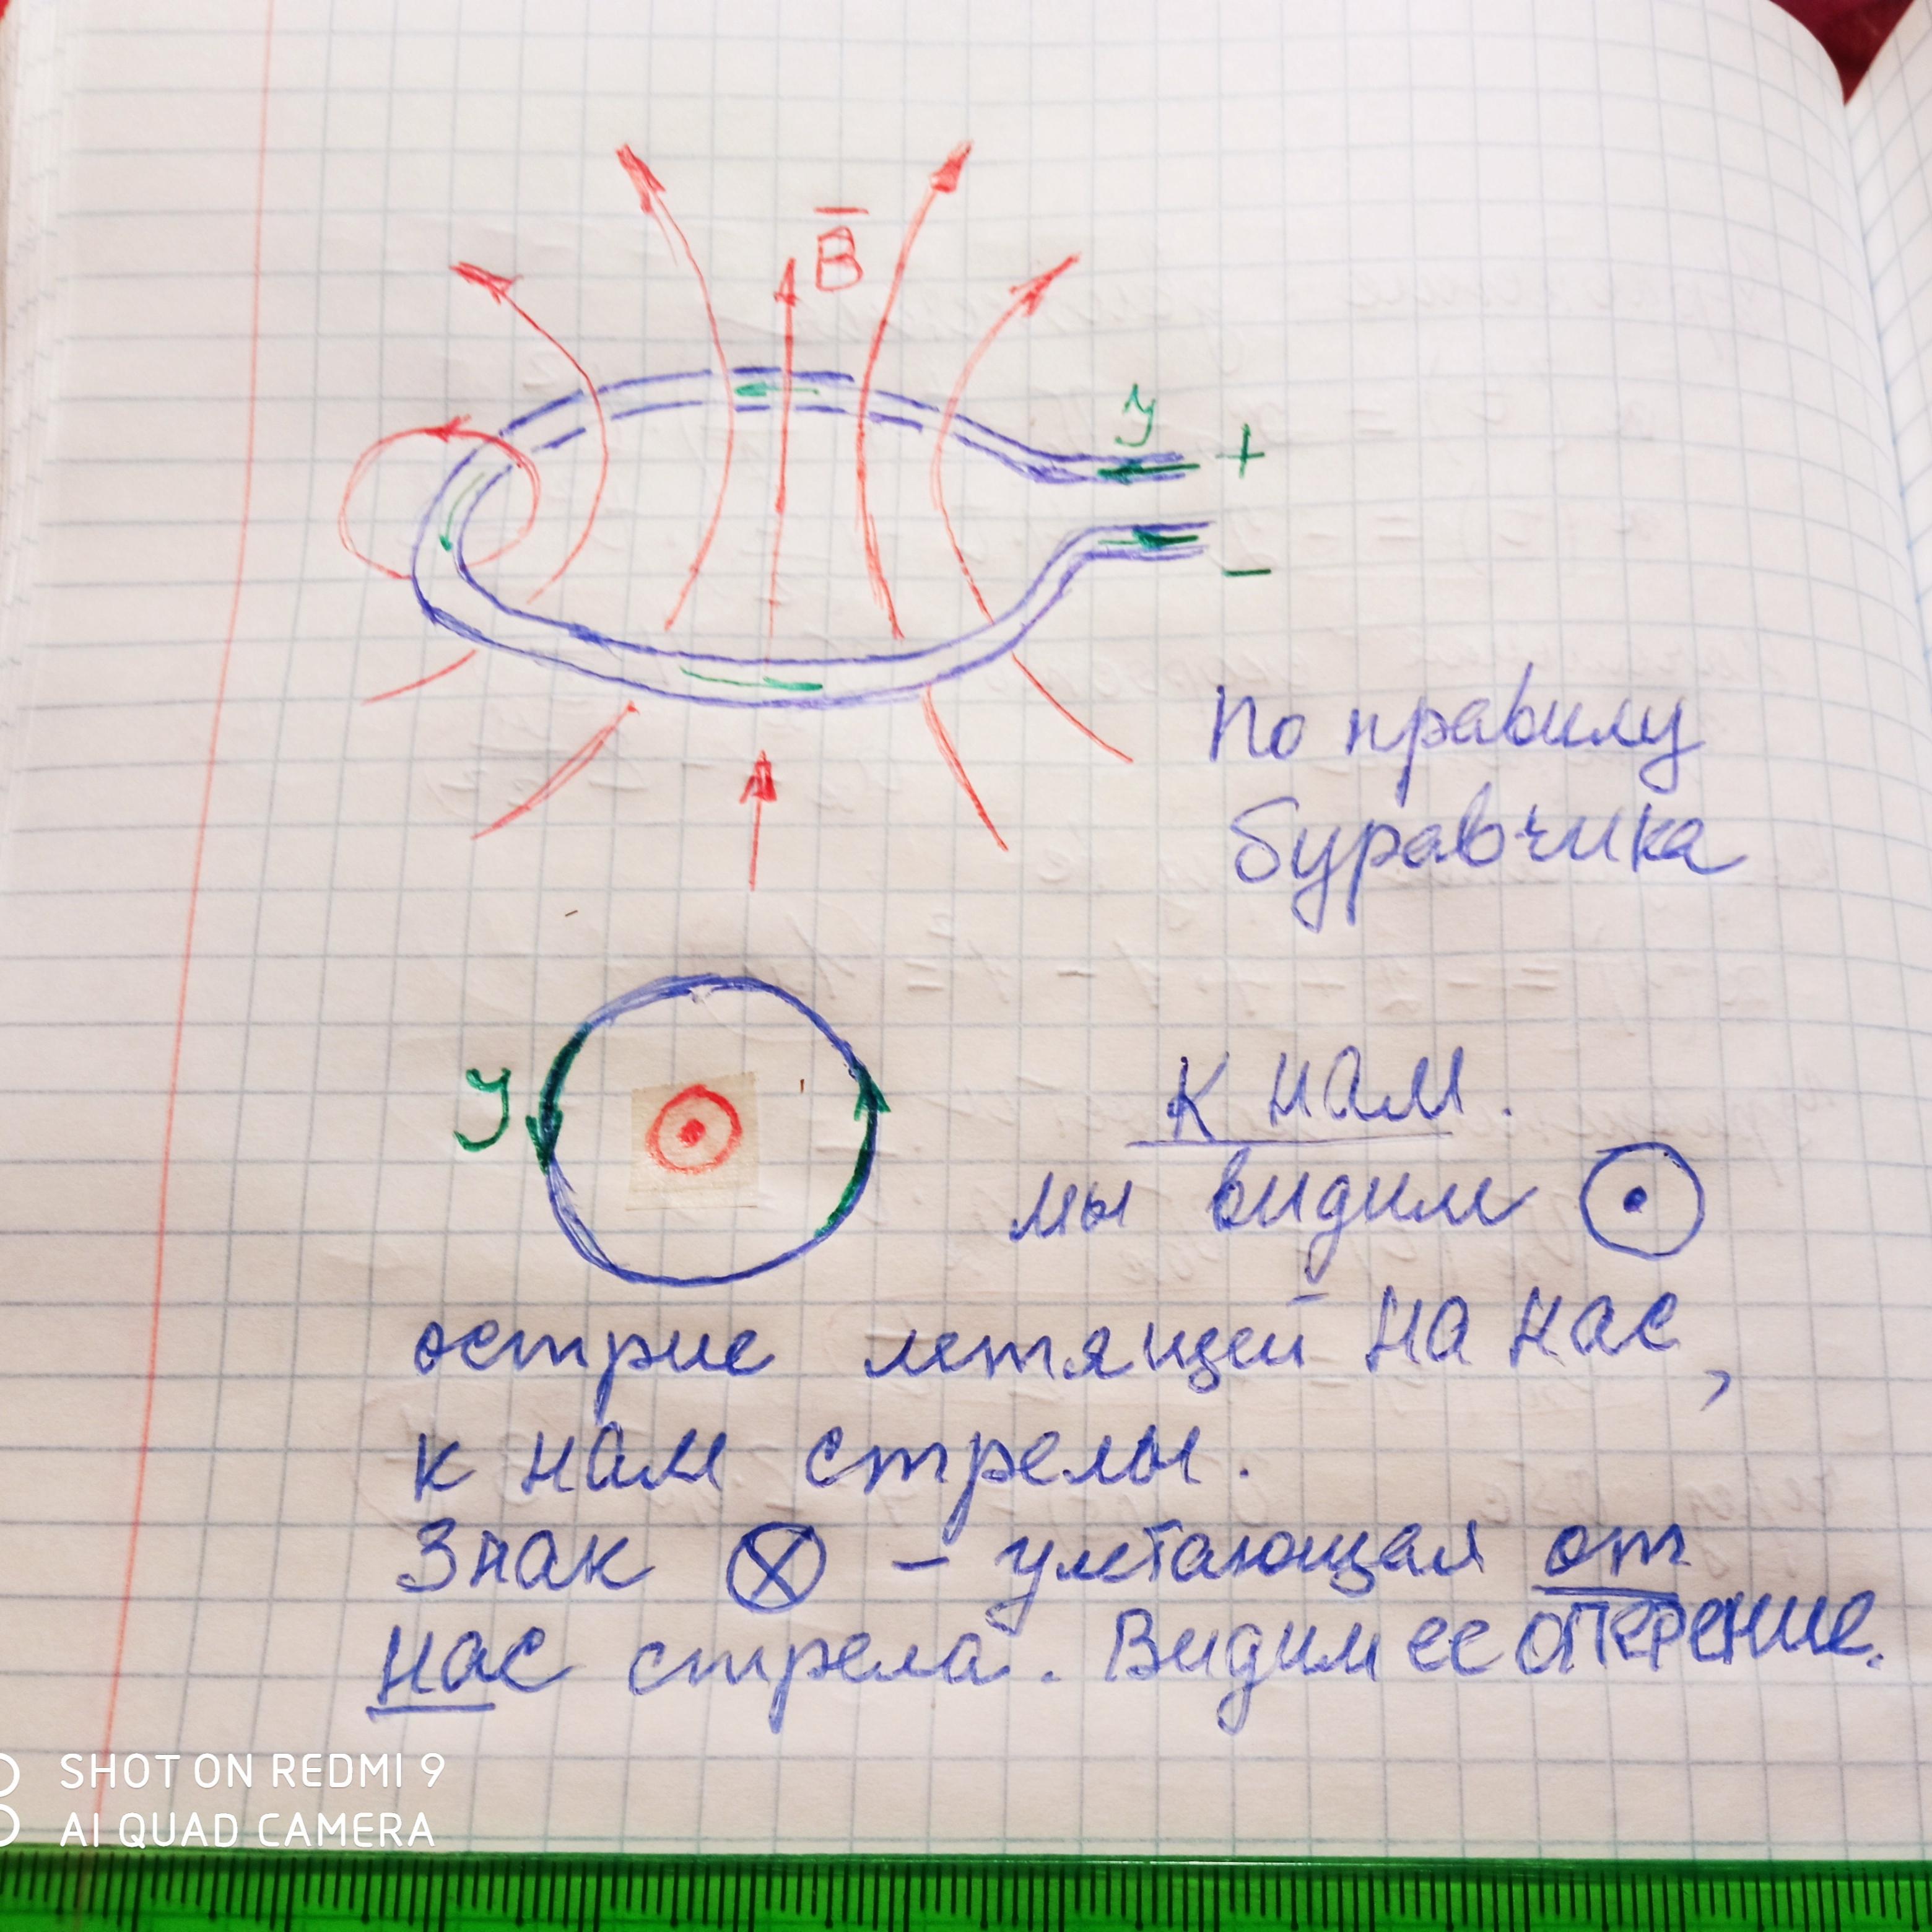 B̅
У +
−
По правилу
буравчика
У
К нам.
мы видим ⊙
острие летящей на нас,
к нам стрелы.
Знак ⊗ – улетающая от
нас стрела. Видим ее оперение.
SHOT ON REDMI 9
AI QUAD CAMERA